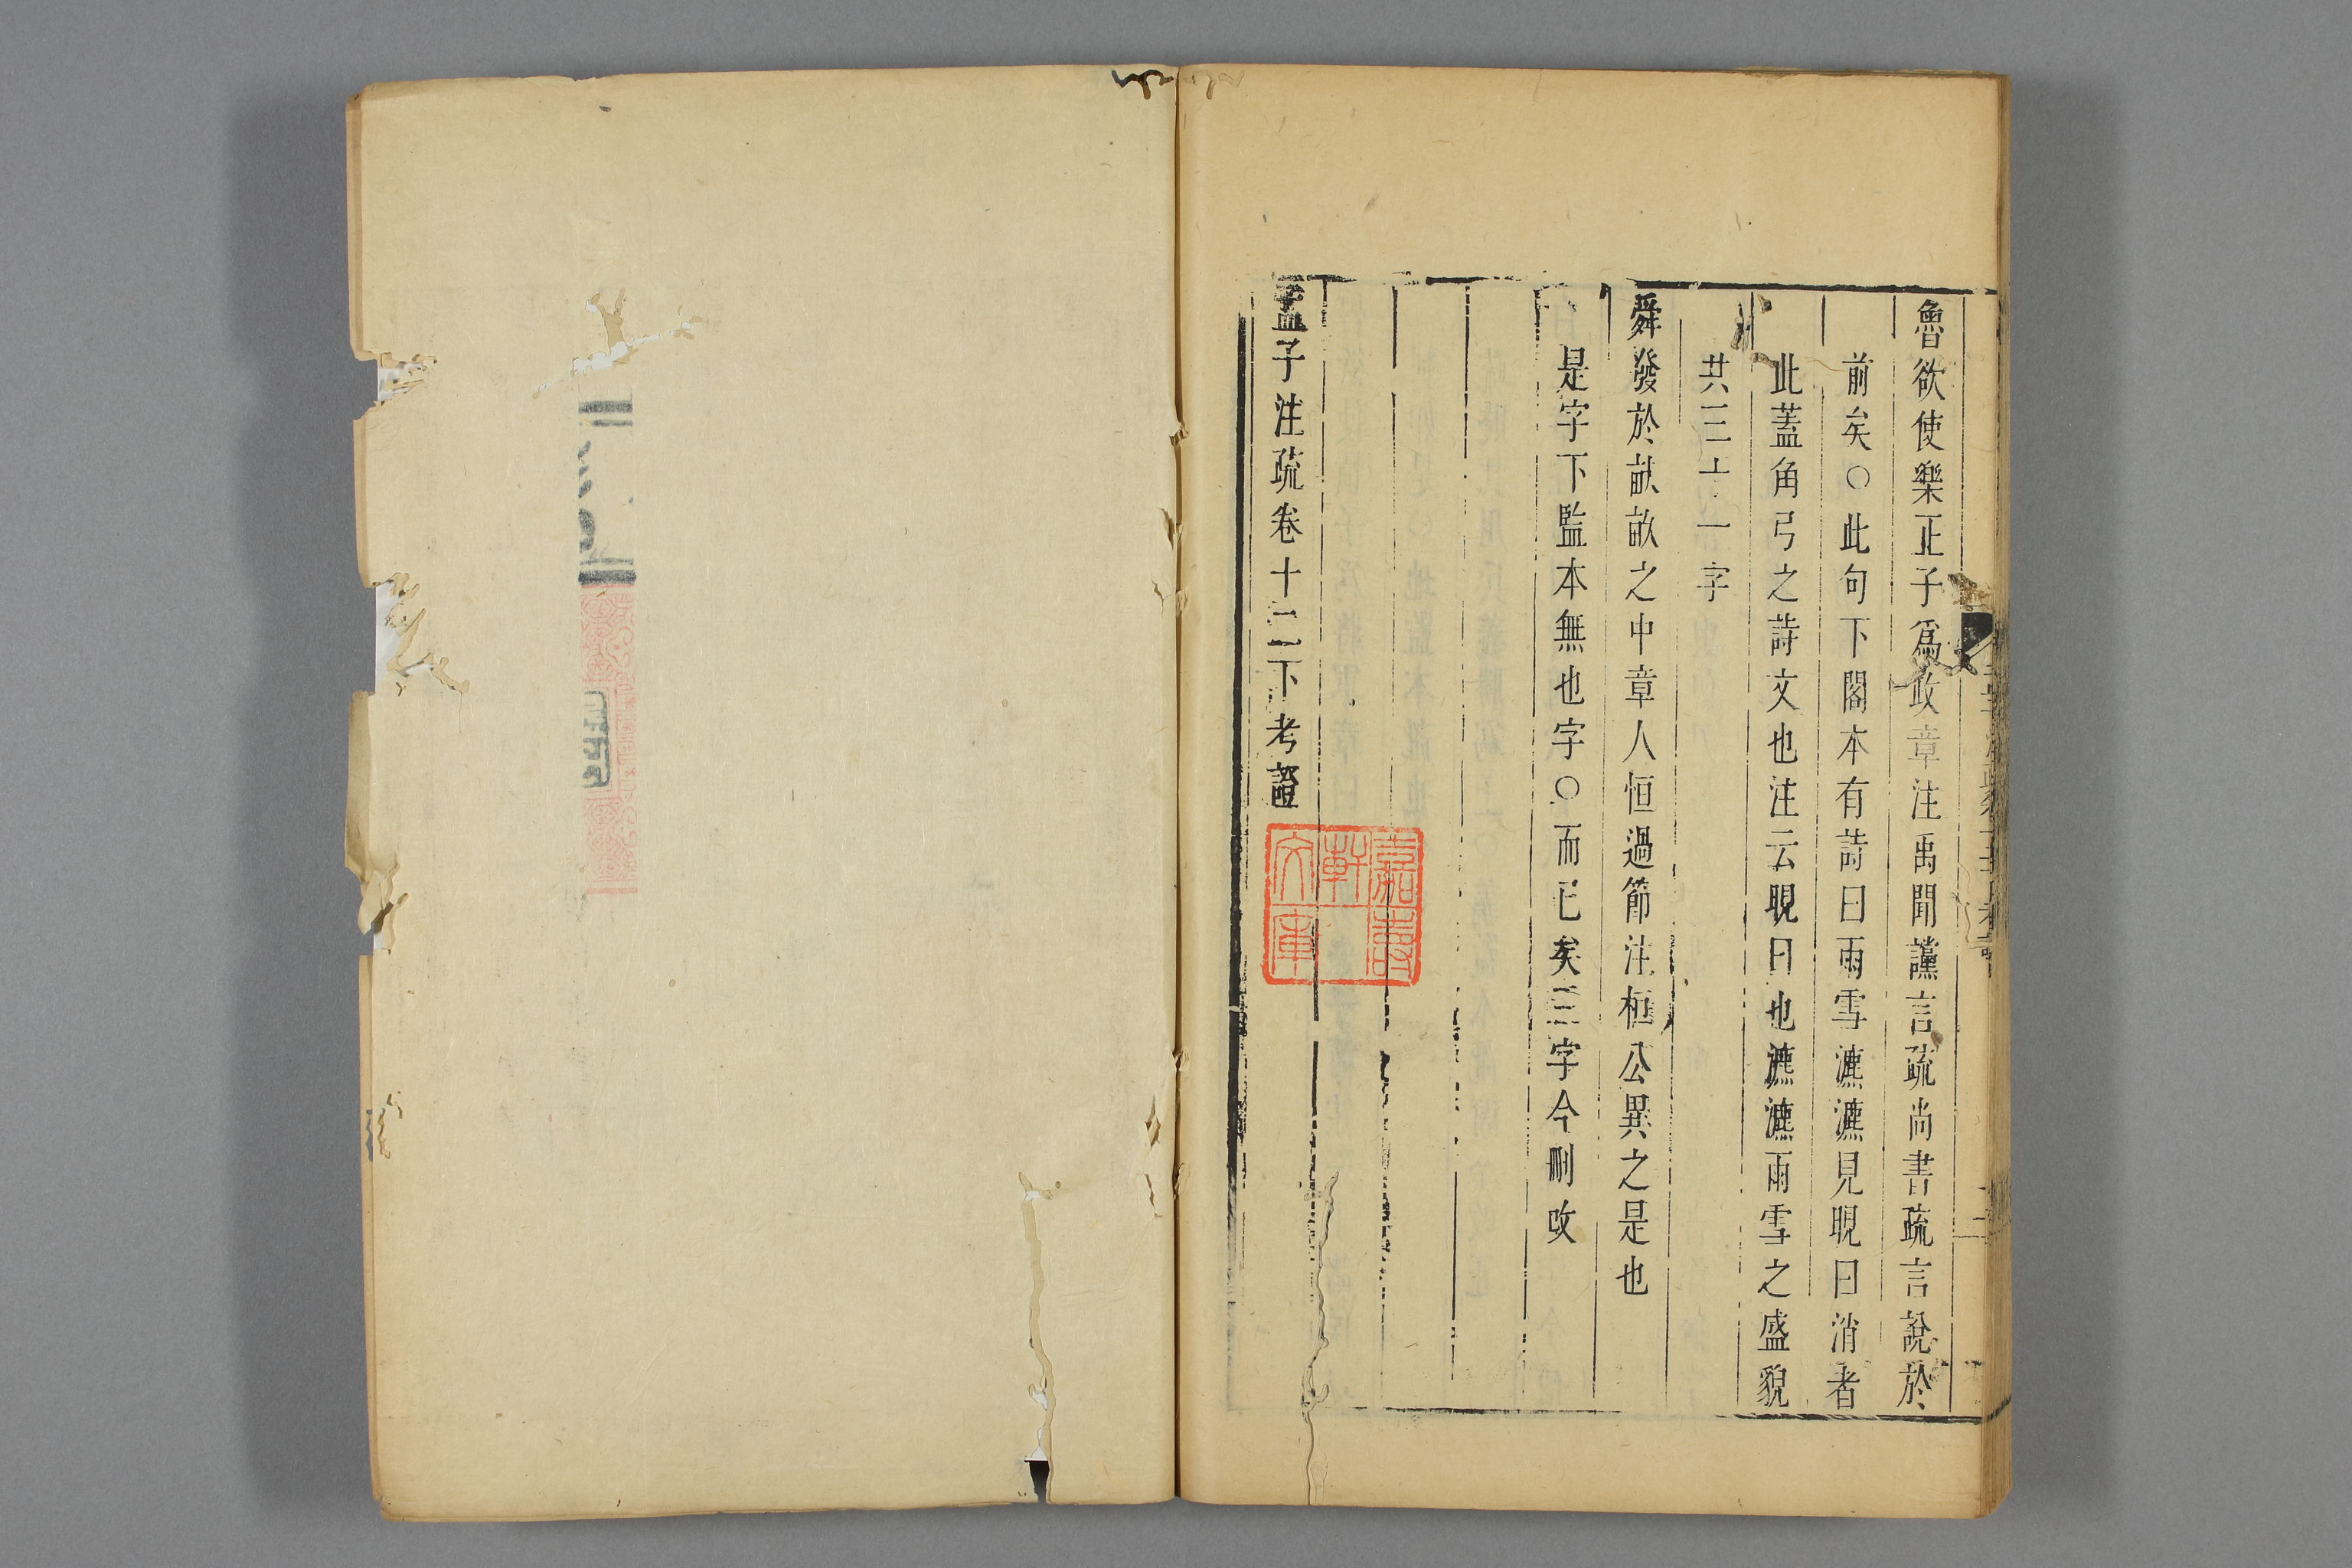 魯欲使樂正子爲政章注禹聞讜言疏尚書疏言說於
前矣○此句下閣本有詩曰雨雪瀌瀌見晛曰消者
此蓋角弓之詩文也注云晛日也瀌瀌雨雪之盛貌
共三十一字
舜發於畎畝之中章人恒過節注桓公異之是也
是字下監本無也字○而已矣三字今刪改
孟子注疏卷十二下考證
嘉壽
軒
文庫